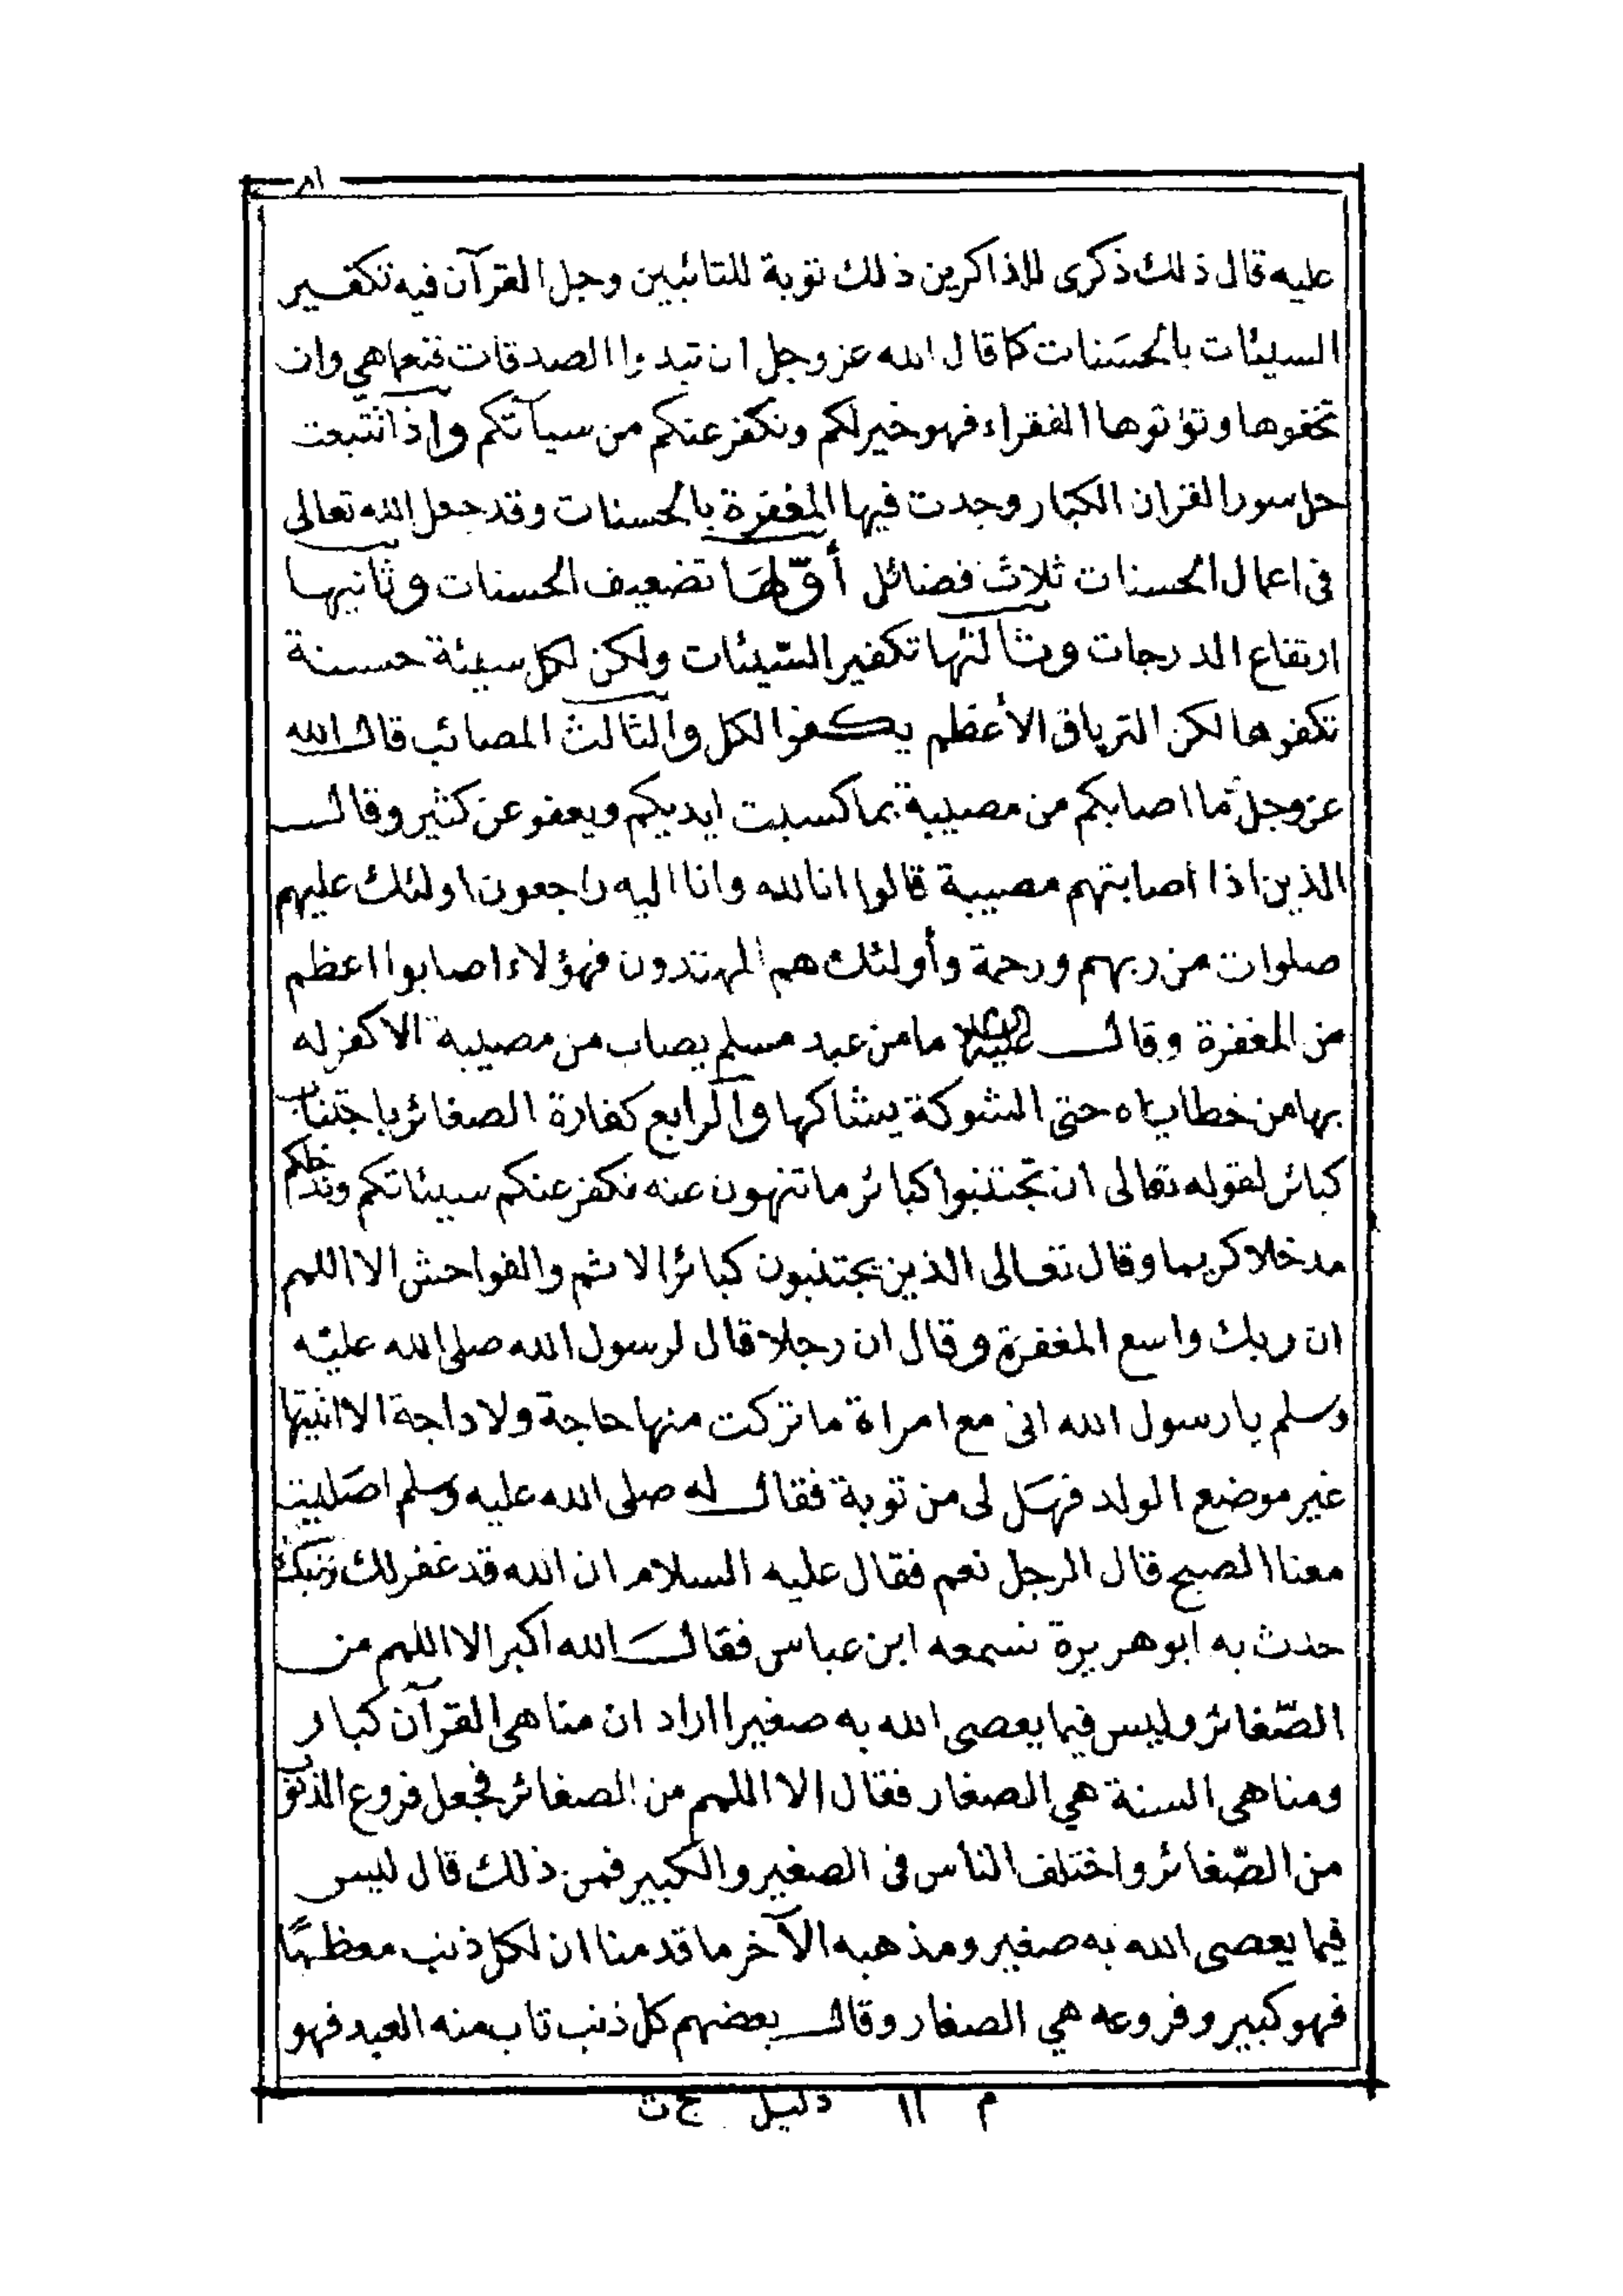 ٨١
عليه قال ذلك ذكرى للذاكرين ذلك توبة للتائبين وجل القرآن فيه تكفير
السيئات بالحسَنات كما قال الله عز وجل ان تبدوا الصدقات فنعما هي وان
تخفوها وتؤتوها الفقراء فهو خير لكم ونكفر عنكم من سيآتكم وإذا تتبعت
جل سور القران الكبار وجدت فيها المغفرة بالحسنات وقد جعل الله تعالى
فى اعمال الحسنات ثلاث فضائل أوّلهَا تضعيف الحسنات وثانيها
ارتفاع الدرجات وثالثها تكفير السّيئات ولكن لكل سيئة حسنة
تكفرها لكن الترياق الأعظم يكفر الكل والثالث المصائب قال الله
عز وجل ما اصابكم من مصيبة بما كسبت ايديكم ويعفو عن كثير وقال
الذين اذا اصابتهم مصيبة قالوا انا لله وانا اليه راجعون اولئك عليهم
صلوات من ربهم ورحمة وأولئك هم المهتدون فهؤلاء اصابوا اعظم
من المغفرة وقال عليه السلام ما من عبد مسلم يصاب من مصيبة الا كفر له
بها من خطاياه حتى الشوكة يشاكها والرابع كفارة الصغائر باجتناب
كبائر لقوله تعالى ان تجتنبوا كبائر ما تنهون عنه نكفر عنكم سيئاتكم وندخلكم
مدخلا كريما وقال تعالى الذين يجتنبون كبائر الاثم والفواحش الا اللمم
ان ربك واسع المغفرة وقال ان رجلا قال لرسول الله صلى الله عليه
وسلم يا رسول الله انى مع امراة ما تركت منها حاجة ولا داجة الا اتيتها
غير موضع الولد فهَل لى من توبة فقال له صلى الله عليه وسلم اصَليت
معنا الصبح قال الرجل نعم فقال عليه السلام ان الله قد غفر لك ذنبك
حدث به ابو هريرة نسمعه ابن عباس فقالَ الله اكبر الا اللمم من
الصّغائر وليس فيما يعصى الله به صغيرا اراد ان مناهى القرآن كبار
ومناهى السنة هي الصغار فقال الا اللمم من الصغائر فجعل فروع الذنوب
من الصّغائر واختلف الناس فى الصغير والكبير فمن ذلك قال ليس
فيما يعصى الله به صغير ومذهبه الآخر ما قدمنا ان لكل ذنب معظمًا
فهو كبير وفروعه هي الصغار وقال بعضهم كل ذنب تاب منه العبد فهو
م ١١ دليل ج ث